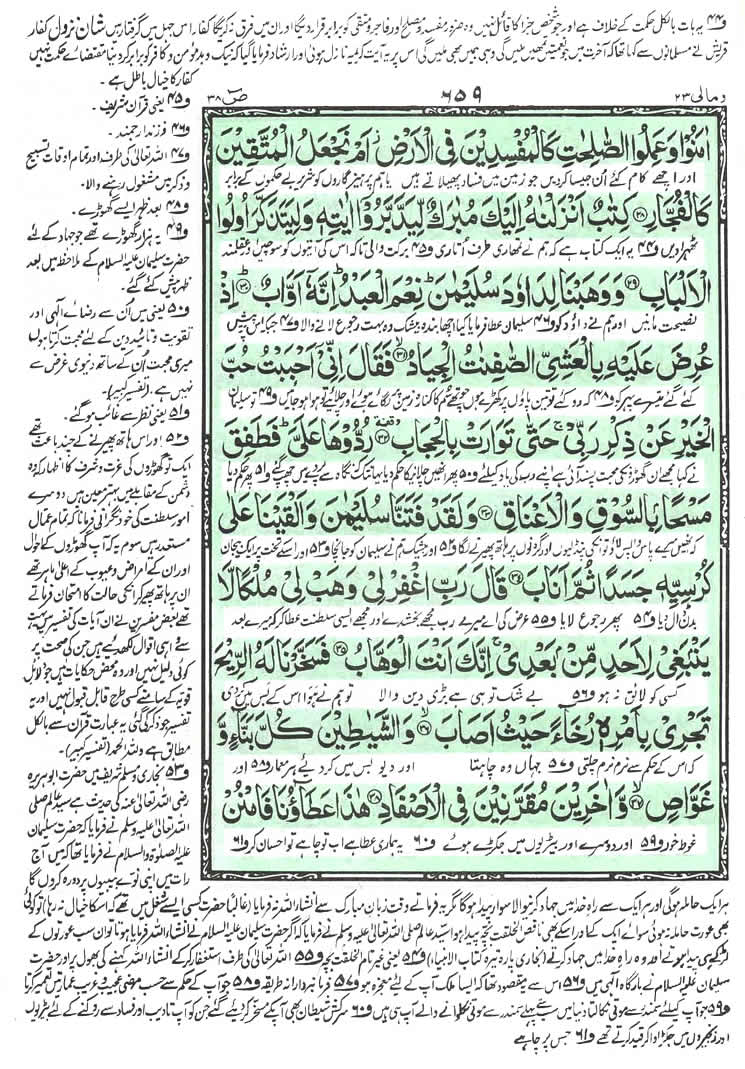 و۴۴ یہ بات بالکل حکمت کے خلاف ہے اور جو شخص جزا کا قائل نہیں وہ ضرور مفسد و مصلح اور فاجر و متقی کو برابر قرار دیگا اور ان میں فرق نہ کریگا کفار اس جہل میں گرفتار ہیں شان نزول کفار
قریش نے مسلمانوں سے کہا تھا کہ آخرت میں جو نعمتیں تمھیں ملیں گی وہی ہمیں بھی ملیں گی اس پر یہ آیت کریمہ نازل ہوئی اور ارشاد فرمایا گیا کہ نیک و بد مومن و کافر کو برابر کر دینا مقتضائے حکمت نہیں
کفار کا خیال باطل ہے۔
و۴۵ یعنی قرآن شریف۔
و۴۶ فرزند ارجمند۔
و۴۷ اللہ تعالیٰ کی طرف اور تمام اوقات تسبیح
و ذکر میں مشغول رہنے والا۔
و۴۸ بعد ظہر ایسے گھوڑے۔
و۴۹ یہ ہزار گھوڑے تھے جو جہاد کے لئے
حضرت سلیمان علیہ السلام کے ملاحظہ میں بعد
ظہر پیش کئے گئے۔
و۵۰ یعنی میں ان سے رضائے الٰہی اور
تقویت و تائید دین کے لئے محبت کرتا ہوں
میری محبت ان کے ساتھ دنیوی غرض سے
نہیں ہے۔ (تفسیر کبیر)
و۵۱ یعنی نظر سے غائب ہو گئے۔
و۵۲ اور اس ہاتھ پھیرنے کے چند باعث تھے
ایک تو گھوڑوں کی عزت و شرف کا اظہار کہ وہ
دشمن کے مقابلے میں بہتر معین ہیں دوسرے
امور سلطنت کی خود نگرانی فرمانا کہ تمام عمال
مستعد رہیں سوم یہ کہ آپ گھوڑوں کے احوال
اور ان کے امراض و عیوب کے اعلیٰ ماہر تھے
ان پر ہاتھ پھیر کر انکی حالت کا امتحان فرماتے
تھے بعض مفسرین نے ان آیات کی تفسیر میں بہت
سے واہی اقوال لکھ دیئے ہیں جن کی صحت پر
کوئی دلیل نہیں اور وہ محض حکایات ہیں جو دلائل
قویہ کے سامنے کسی طرح قابل قبول نہیں اور یہ
تفسیر جو ذکر کی گئی یہ عبارت قرآن سے بالکل
مطابق ہے وللہ الحمد (تفسیر کبیر)
و۵۳ بخاری و مسلم شریف میں حضرت ابو ہریرہ
رضی اللہ تعالیٰ عنہ کی حدیث ہے سید عالم صلی
اللہ تعالیٰ علیہ وسلم نے فرمایا کہ حضرت سلیمان
علیہ الصلوٰۃ والسلام نے فرمایا تھا کہ میں آج
رات میں اپنی نوے بیبیوں پر دورہ کروں گا
ومالی ۲۳
۶۵۹
صٓ ۳۸
اٰمَنُوْا وَعَمِلُوا الصّٰلِحٰتِ كَالْمُفْسِدِيْنَ فِى الْاَرْضِ اَمْ نَجْعَلُ الْمُتَّقِيْنَ
اور اچھے کام کئے ان جیسا کردیں جو زمین میں فساد پھیلاتے ہیں یا ہم پرہیزگاروں کو شریر بے حکموں کے برابر
كَالْفُجَّارِ ﴿۲۸﴾ كِتٰبٌ اَنْزَلْنٰهُ اِلَيْكَ مُبٰرَكٌ لِّيَدَّبَّرُوْٓا اٰيٰتِهٖ وَلِيَتَذَكَّرَ اُولُوا
ٹھہرادیں و۴۴ یہ ایک کتاب ہے کہ ہم نے تمہاری طرف اتاری و۴۵ برکت والی تاکہ اس کی آیتوں کو سوچیں اور عقلمند
الْاَلْبَابِ ﴿۲۹﴾ وَوَهَبْنَا لِدَاوٗدَ سُلَيْمٰنَ ؕ نِعْمَ الْعَبْدُ ؕ اِنَّهٗٓ اَوَّابٌ ﴿۳۰﴾ اِذْ
نصیحت مانیں اور ہم نے داؤد کو و۴۶ سلیمان عطا فرمایا کیا اچھا بندہ بیشک وہ بہت رجوع لانے والا و۴۷ جبکہ اس پر پیش
عُرِضَ عَلَيْهِ بِالْعَشِىِّ الصّٰفِنٰتُ الْجِيَادُ ﴿۳۱﴾ فَقَالَ اِنِّىْٓ اَحْبَبْتُ حُبَّ
کئے گئے تیسرے پہر کو و۴۸ کہ روکئے تو تین پاؤں پر کھڑے ہوں چوتھے سم کا کنارہ زمین پر لگائے ہوئے اور چلائیے تو ہوا ہو جائیں و۴۹ تو سلیمان
الْخَيْرِ عَنْ ذِكْرِ رَبِّىْ ۚ حَتّٰى تَوَارَتْ بِالْحِجَابِ ﴿۳۲﴾ رُدُّوْهَا عَلَىَّ ؕ فَطَفِقَ
نے کہا مجھے ان گھوڑوں کی محبت پسند آئی ہے اپنے رب کی یاد کیلئے و۵۰ پھر انھیں چلانے کا حکم دیا یہاں تک کہ نگاہ سے پردے میں چھپ گئے و۵۱ پھر حکم دیا
مَسْحًۢا بِالسُّوْقِ وَالْاَعْنَاقِ ﴿۳۳﴾ وَلَقَدْ فَتَنَّا سُلَيْمٰنَ وَاَلْقَيْنَا عَلٰى
کہ انھیں میرے پاس واپس لاؤ تو ان کی پنڈلیوں اور گردنوں پر ہاتھ پھیرنے لگا و۵۲ اور بیشک ہم نے سلیمان کو جانچا و۵۳ اور اسکے تخت پر ایک بیجان
كُرْسِيِّهٖ جَسَدًا ثُمَّ اَنَابَ ﴿۳۴﴾ قَالَ رَبِّ اغْفِرْ لِىْ وَهَبْ لِىْ مُلْكًا لَّا
بدن ڈال دیا و۵۴ پھر رجوع لایا و۵۵ عرض کی اے میرے رب مجھے بخشدے اور مجھے ایسی سلطنت عطا کر کہ میرے بعد
يَنْۢبَغِىْ لِاَحَدٍ مِّنْۢ بَعْدِىْ ۚ اِنَّكَ اَنْتَ الْوَهَّابُ ﴿۳۵﴾ فَسَخَّرْنَا لَهُ الرِّيْحَ
کسی کو لائق نہ ہو و۵۶ بے شک تو ہی ہے بڑی دین والا تو ہم نے ہوا اس کے بس میں کردی
تَجْرِىْ بِاَمْرِهٖ رُخَآءً حَيْثُ اَصَابَ ﴿۳۶﴾ وَالشَّيٰطِيْنَ كُلَّ بَنَّآءٍ وَّ
کہ اس کے حکم سے نرم نرم چلتی و۵۷ جہاں وہ چاہتا اور دیو بس میں کردئیے ہر معمار و۵۸ اور
غَوَّاصٍ ﴿۳۷﴾ وَّاٰخَرِيْنَ مُقَرَّنِيْنَ فِى الْاَصْفَادِ ﴿۳۸﴾ هٰذَا عَطَآؤُنَا فَامْنُنْ
غوطہ خور و۵۹ اور دوسرے اور بیڑیوں میں جکڑے ہوئے و۶۰ یہ ہماری عطا ہے اب تو چاہے تو احسان کر و۶۱
ہر ایک حاملہ ہوگی اور ہر ایک سے راہ خدا میں جہاد کرنیوالا سوار پیدا ہوگا مگر یہ فرماتے وقت زبان مبارک سے انشاء اللہ نہ فرمایا (غالباً حضرت کسی ایسے شغل میں تھے کہ اسکا خیال نہ رہا) تو کوئی
بھی عورت حاملہ نہ ہوئی سوائے ایک کے اور اسکے بھی ناقص الخلقت بچہ پیدا ہوا سید عالم صلی اللہ تعالیٰ علیہ وسلم نے فرمایا کہ اگر حضرت سلیمان علیہ السلام نے انشاء اللہ فرمایا ہوتا تو ان سب عورتوں کے
لڑکے ہی پیدا ہوتے اور وہ راہ خدا میں جہاد کرتے (بخاری پارہ تیرہ کتاب الانبیاء) و۵۴ یعنی غیر تام الخلقت بچہ و۵۵ اللہ تعالیٰ کی طرف استغفار کر کے انشاء اللہ کہنے کی بھول پر اور حضرت
سلیمان علیہ السلام نے بارگاہ الٰہی میں و۵۶ اس سے یہ مقصود تھا کہ ایسا ملک آپ کے لئے معجزہ ہو و۵۷ فرمانبردارانہ طریقہ پر و۵۸ جو آپ کے حکم سے حسب مرضی عجیب و غریب عمارتیں تعمیر کرتا
و۵۹ جو آپ کیلئے سمندر سے موتی نکالتا دنیا میں سب سے پہلے سمندر سے موتی نکلوانے والے آپ ہی ہیں و۶۰ سرکش شیطان بھی آپکے مسخر کردیئے گئے جن کو آپ تادیب اور فساد سے روکنے کے لئے بیڑیوں
اور زنجیروں میں جکڑوا کر قید کرتے تھے و۶۱ جس پر چاہے